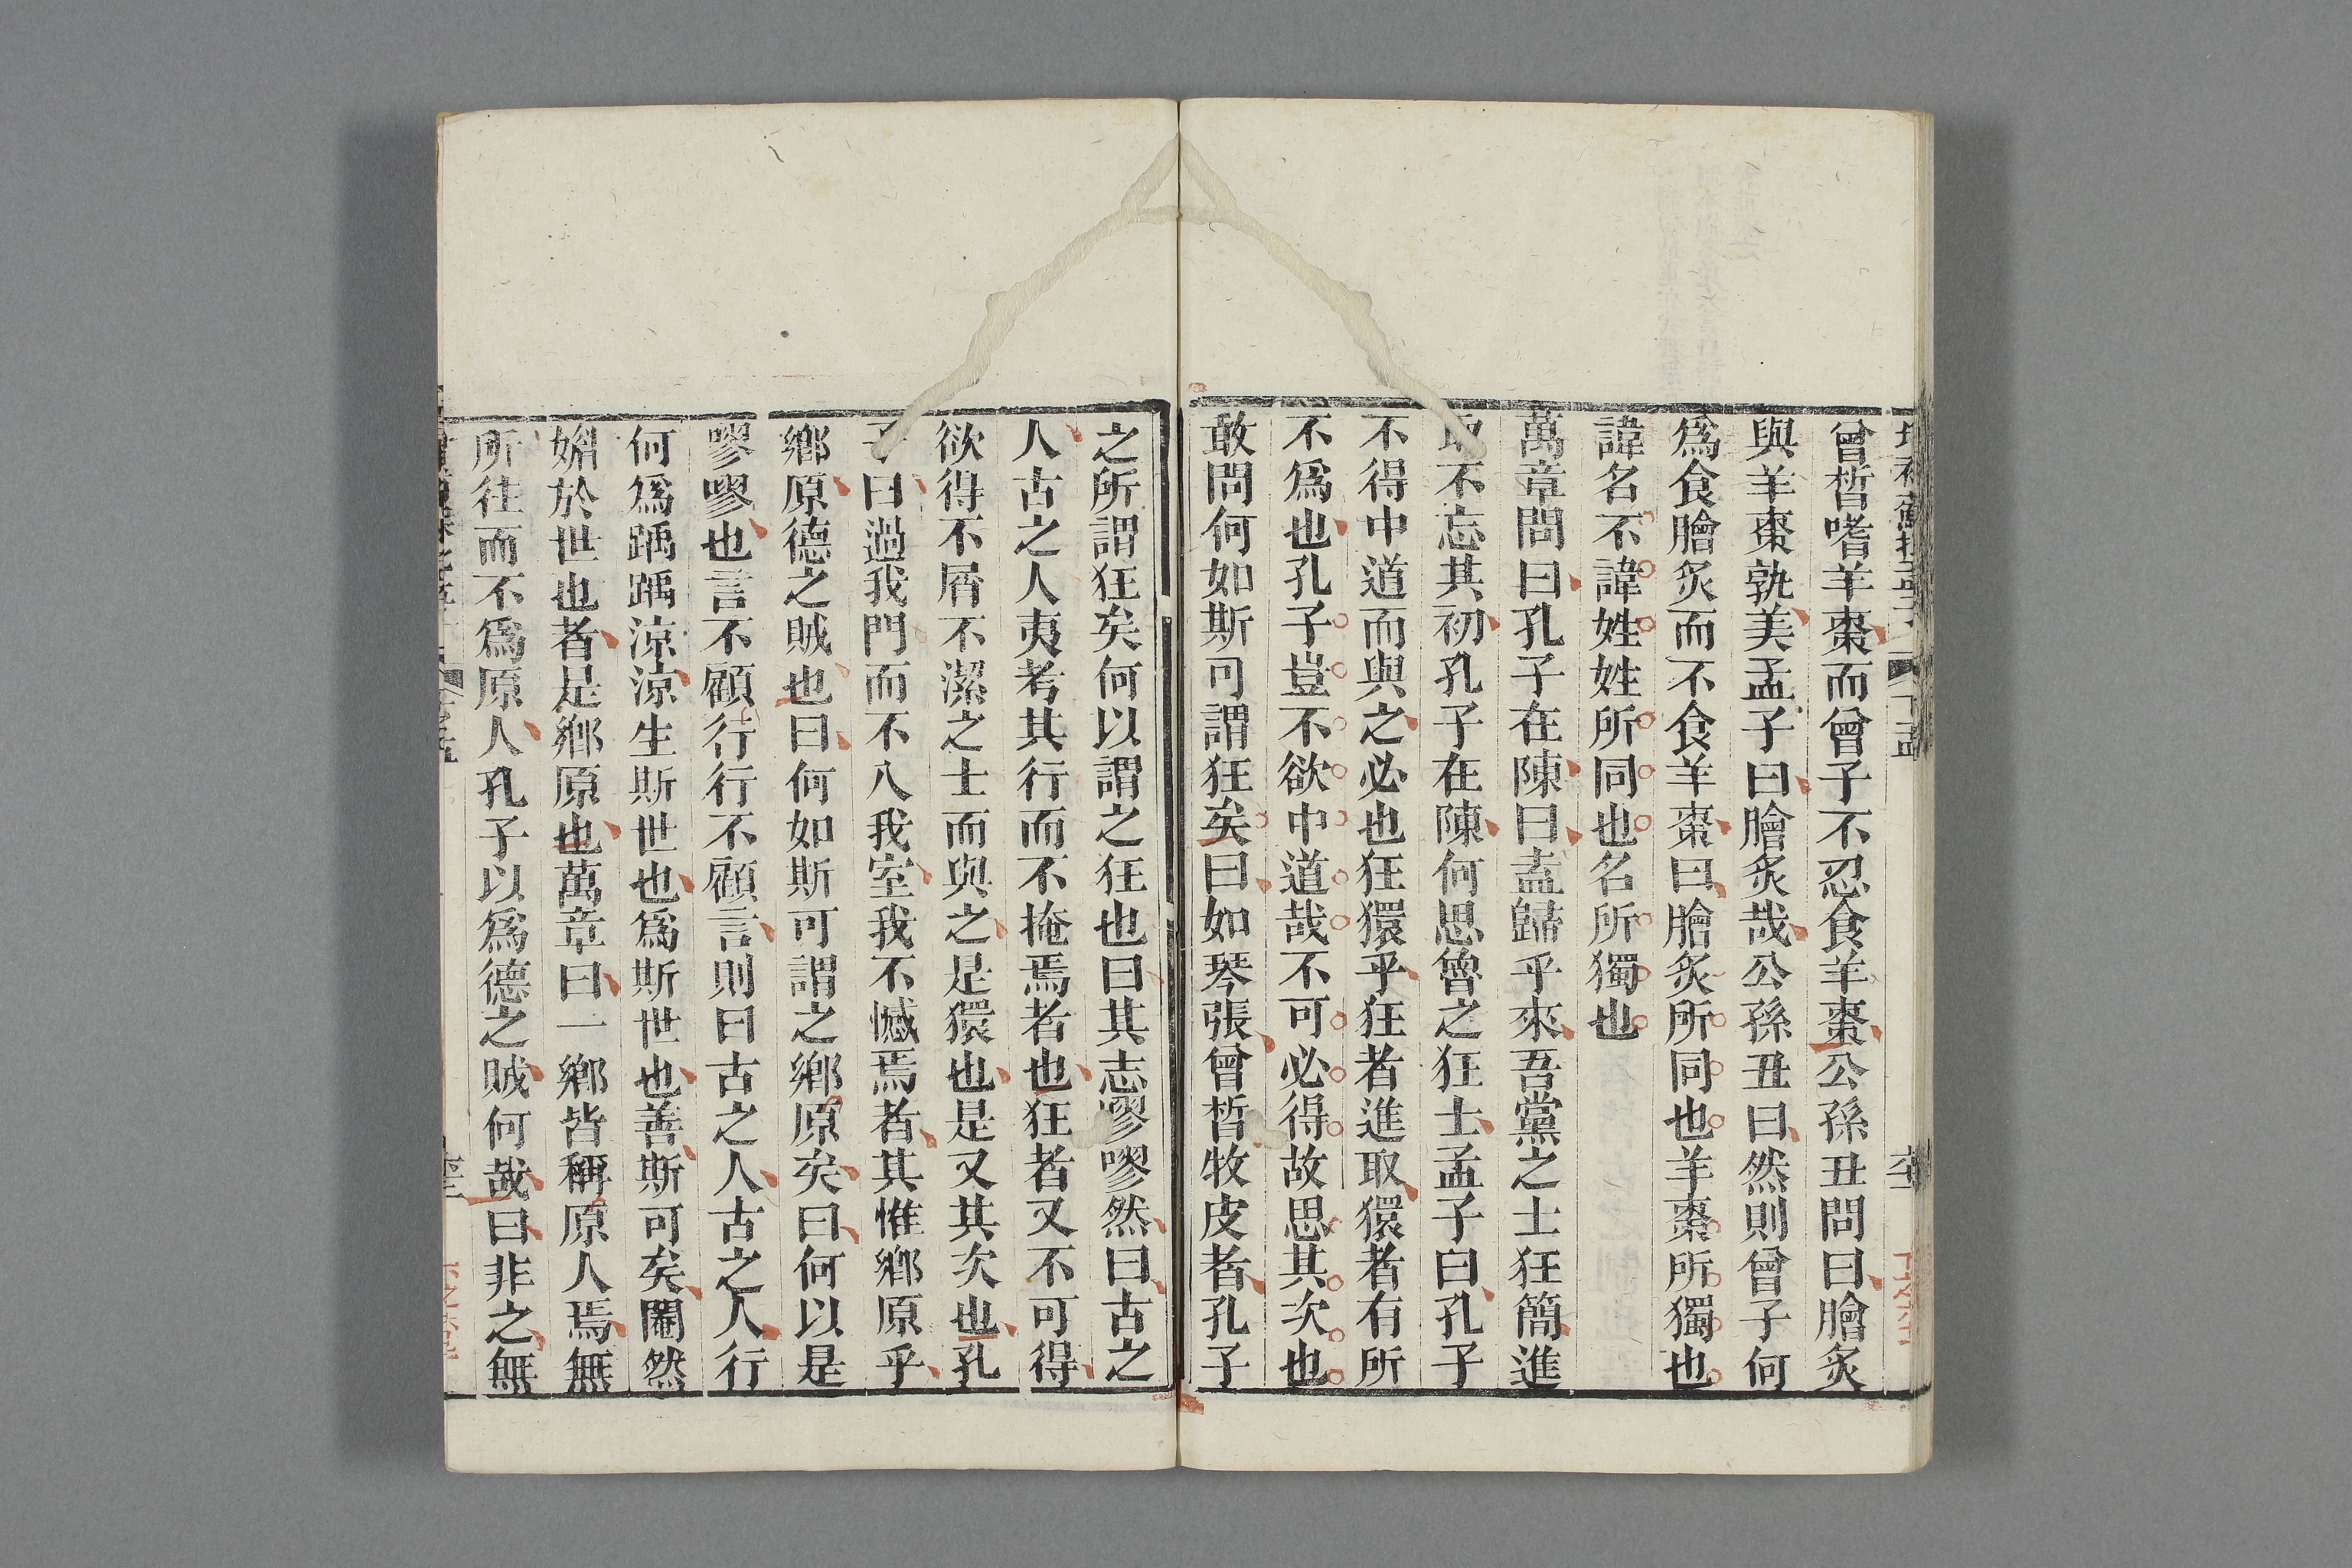 曾晳嗜羊棗而曾子不忍食羊棗公孫丑問曰膾炙
與羊棗孰美孟子曰膾炙哉公孫丑曰然則曾子何
爲食膾炙而不食羊棗曰膾炙所同也羊棗所獨也
諱名不諱姓姓所同也名所獨也
萬章問曰孔子在陳曰盍歸乎來吾黨之士狂簡進
取不忘其初孔子在陳何思魯之狂士孟子曰孔子
不得中道而與之必也狂獧乎狂者進取獧者有所
不爲也孔子豈不欲中道哉不可必得故思其次也
敢問何如斯可謂狂矣曰如琴張曾晳牧皮者孔子
之所謂狂矣何以謂之狂也曰其志嘐嘐然曰古之
人古之人夷考其行而不掩焉者也狂者又不可得
欲得不屑不潔之士而與之是獧也是又其次也孔
子曰過我門而不入我室我不憾焉者其惟鄉原乎
鄉原德之賊也曰何如斯可謂之鄉原矣曰何以是
嘐嘐也言不顧行行不顧言則曰古之人古之人行
何爲踽踽涼涼生斯世也爲斯世也善斯可矣閹然
媚於世也者是鄉原也萬章曰一鄉皆稱原人焉無
所往而不爲原人孔子以爲德之賊何哉曰非之無